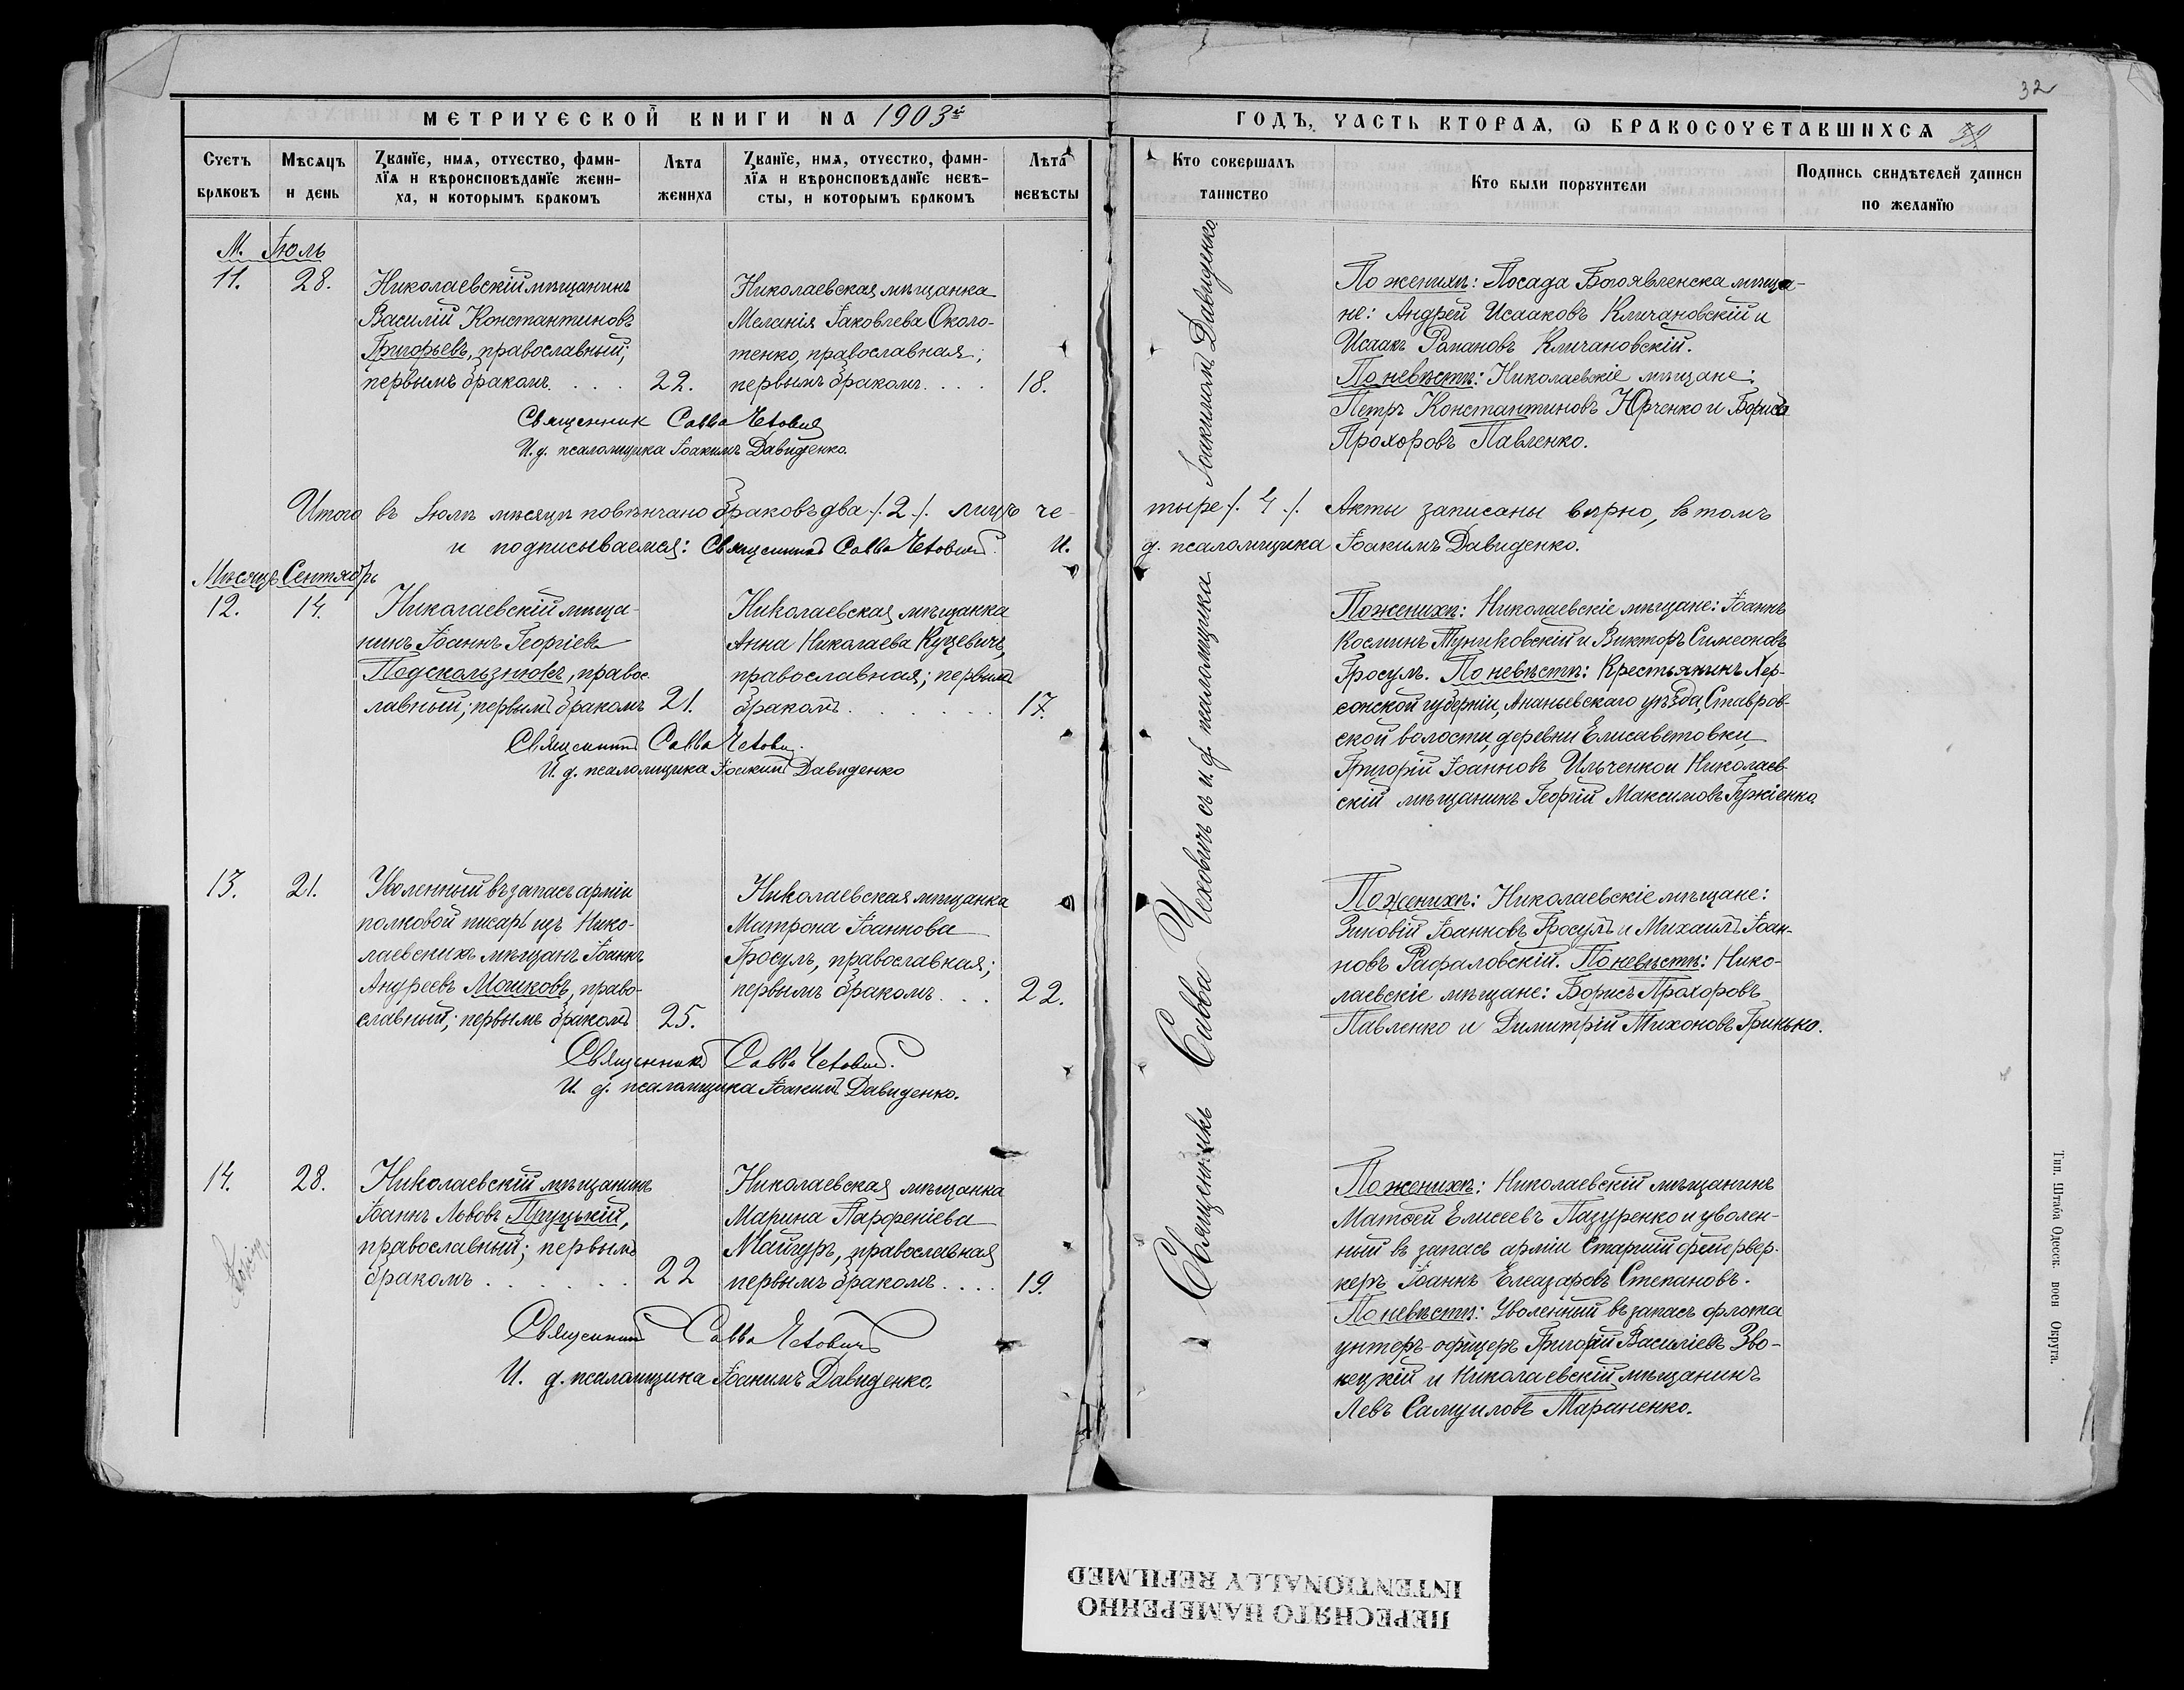 32
МЕТРИЧЕСКОЙ КНИГИ НА 1903й
ГОДЪ, ЧАСТЬ ВТОРАЯ, Ѡ БРАКОСОЧЕТАВШИХСЯ
Счетъ браковъ
Мѣсяцъ и день
Званїе, имя, отчество, фами-
лїя и вѣроисповѣданїе жени-
ха, и которымъ бракомъ
Лѣта жениха
Званїе, имя, отчество, фами-
лїя и вѣроисповѣданїе невѣ-
сты, и которымъ бракомъ
Лѣта невѣсты
Кто совершалъ таинство
Кто были поручители
Подпись свидѣтелей записи по желанїю
М. Іюль
11. 28.
Николаевскій мѣщанинъ
Василій Константиновъ
Григорьевъ, православный;
первымъ бракомъ. . . . 22.
Николаевская мѣщанка
Меланія Іаковлева Около-
тенко, православная;
первымъ бракомъ. . . . 18.
По женихѣ: Посада Богоявленска мѣща-
не: Андрей Исааковъ Кличановскій и
Исаакъ Романовъ Кличановскій.
По невѣстѣ: Николаевскіе мѣщане:
Петръ Константиновъ Юрченко и Борисъ
Прохоровъ Павленко.
Священник Савва Чехович
И. д. псаломщика Іоакимъ Давиденко.
Итого въ Іюлѣ мѣсяцѣ повѣнчано браковъ два /.2./. лицъ че-
тыре /. 4 ./. Акты записаны вѣрно, въ томъ
и подписываемся: Священникъ Савва Чеховичъ. И.
д. псаломщика Іоакимъ Давиденко.
Мѣсяцъ Сентябрь
12. 14.
Николаевскій мѣща-
нинъ Іоаннъ Георгіевъ
Подскользновъ, правос-
лавный; первымъ бракомъ 21.
Николаевская мѣщанка
Анна Николаева Куцевичъ,
православная; первымъ
бракомъ. . . . . . . 17.
По женихѣ: Николаевскіе мѣщане: Іоаннъ
Косминъ Туниковскій и Викторъ Симеоновъ
Гросулъ. По невѣстѣ: Крестьянинъ Хер-
сонской губерніи, Ананьевскаго уѣзда, Ставров-
ской волости, деревни Елисаветовки,
Григорій Іоанновъ Ильченко и Николаев-
скій мѣщанинъ Георгій Максимовъ Гужіенко.
Священникъ Савва Чехович.
И. д. псаломщика Іоакимъ Давиденко
13. 21.
Уволенный въ запасъ арміи
полковой писарь изъ Нико-
лаевскихъ мѣщанъ Іоаннъ
Андреевъ Мошковъ, право-
славный; первымъ бракомъ 25.
Николаевская мѣщанка
Матрона Іоаннова
Гросулъ, православная;
первымъ бракомъ. . . . 22.
По женихѣ: Николаевскіе мѣщане:
Зиновій Іоанновъ Гросулъ и Михаилъ Іоан-
новъ Рафаловскій. По невѣстѣ: Нико-
лаевскіе мѣщане: Борисъ Прохоровъ
Павленко и Димитрій Тихоновъ Гринько.
Священникъ Савва Чехович.
И. д. псаломщика Іоакимъ Давиденко.
14. 28.
Николаевскій мѣщанинъ
Іоаннъ Львовъ
православный; первымъ
бракомъ . . . . . . . 22
Николаевская мѣщанка
Марина Парфеніева
Майгуръ, православная
первымъ бракомъ. . . . 19.
По женихѣ: Николаевскій мѣщанинъ
Матѳей Елисеевъ Пазуренко и уволен-
ный въ запасъ арміи старшій фейервер-
керъ Іоаннъ Елеазаровъ Степановъ.
По невѣстѣ: Уволенный въ запасъ флота
унтеръ-офицеръ Григорій Василіевъ Зво-
нецкій и Николаевскій мѣщанинъ
Левъ Самуиловъ Тараненко.
Священникъ Савва Чеховичъ
И. д. псаломщика Іоакимъ Давиденко.
Священникъ Савва Чеховичъ съ и. д. псаломщика Іоакимомъ Давиденко
Тип. Штаба Одесск. воен Округа.
ПЕРЕСНЯТО НАМЕРЕННО
INTENTIONALLY REFILMED